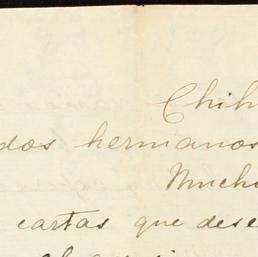 Chih
dos hermanos
Much
cartas que dese